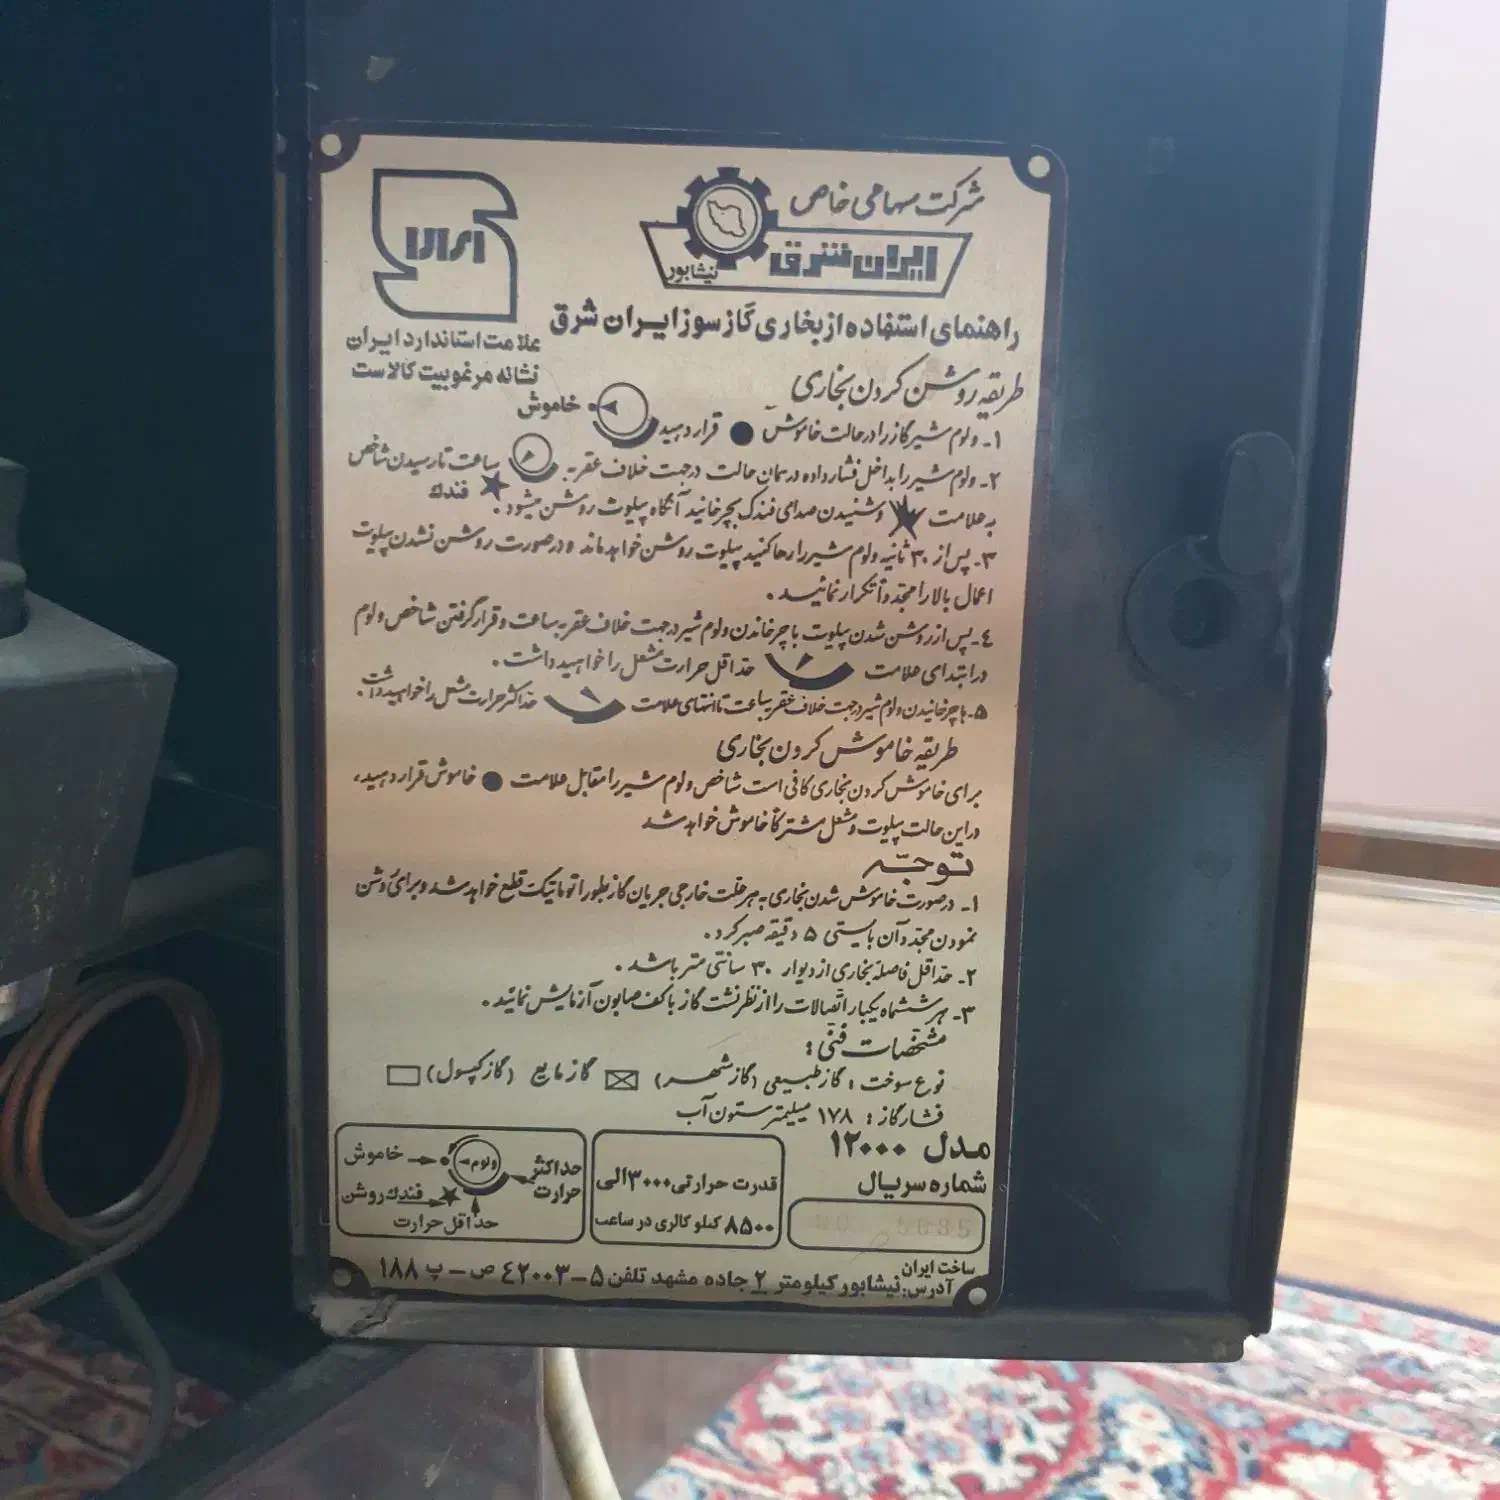 شرکت سهامی خاص
ایران شرق
نیشابور
علامت استاندارد ایران
نشانه مرغوبیت کالاست
راهنمای استفاده از بخاری گازسوز ایران شرق
طریقه روشن کردن بخاری
۱- ولوم شیر گاز را در حالت خاموش ● قرار دهید خاموش
۲- ولوم شیر را بداخل فشار داده در همان حالت درجهت خلاف عقربه ساعت تا رسیدن شاخص
به علامت ★ وشنیدن صدای فندک بچرخانید آنگاه پیلوت روشن میشود . ★ فندک
۳- پس از ۳۰ ثانیه ولوم شیر را رها کنید پیلوت روشن خواهد ماند و درصورت روشن نشدن پیلوت
اعمال بالا را مجدداً تکرار نمائید .
٤- پس از روشن شدن پیلوت با چرخاندن ولوم شیر درجهت خلاف عقربه ساعت و قرار گرفتن شاخص ولوم
در ابتدای علامت حداقل حرارت مشعل را خواهید داشت .
۵- با چرخانیدن ولوم شیر درجهت خلاف عقربه ساعت تا انتهای علامت حداکثر حرارت مشعل را خواهید داشت .
طریقه خاموش کردن بخاری
برای خاموش کردن بخاری کافی است شاخص ولوم شیر را مقابل علامت ● خاموش قرار دهید،
دراین حالت پیلوت و مشعل مشترکاً خاموش خواهد شد
توجّه
۱- درصورت خاموش شدن بخاری به هر علت خارجی جریان گاز بطور اتوماتیک قطع خواهد شد و برای روشن
نمودن مجدد آن بایستی ۵ دقیقه صبر کرد .
۲- حداقل فاصله بخاری از دیوار ۳۰ سانتی متر باشد .
۳- هر ششماه یکبار اتصالات را از نظر نشت گاز با کف صابون آزمایش نمائید .
مشخصات فنی :
نوع سوخت : گاز طبیعی (گاز شهر) ☒ گاز مایع (گاز کپسول) ☐
فشار گاز : ۱۷۸ میلیمتر ستون آب
مدل ۱۲۰۰۰
شماره سریال
5635
قدرت حرارتی ۳۰۰۰ الی
۸۵۰۰ کیلو کالری در ساعت
حداکثر حرارت
ولوم
خاموش
فندک روشن
حداقل حرارت
ساخت ایران
آدرس: نیشابور کیلومتر ۲ جاده مشهد تلفن ۵-٤۲۰۰۳ ص - پ ۱۸۸